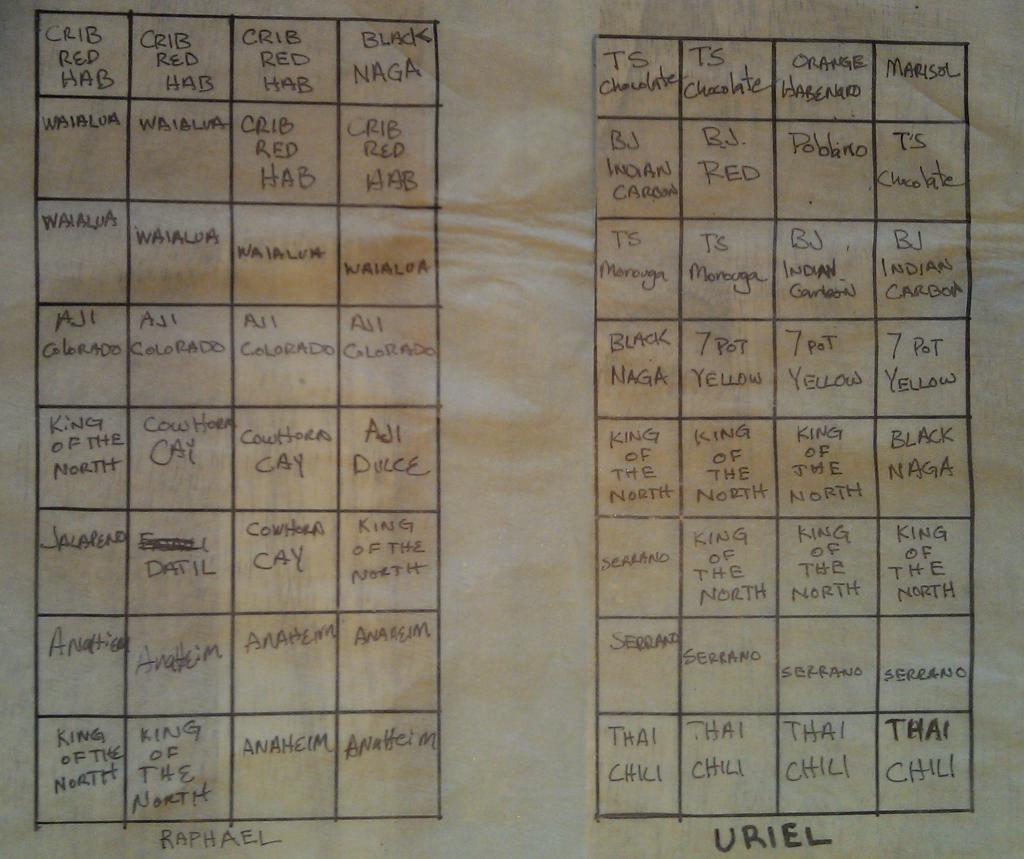 CRIB
RED
HAB
CRIB
RED
HAB
CRIB
RED
HAB
BLACK
NAGA
WAIALUA
WAIALUA
CRIB
RED
HAB
CRIB
RED
HAB
WAIALUA
WAIALUA
WAIALUA
WAIALUA
AJI
COLORADO
AJI
COLORADO
AJI
COLORADO
AJI
COLORADO
KING
OF THE
NORTH
COWHORN
CAY
COWHORN
CAY
AJI
DULCE
JALAPENO
DATIL
COWHORN
CAY
KING
OF THE
NORTH
Anaheim
Anaheim
ANAHEIM
ANAHEIM
KING
OF THE
NORTH
KING
OF
THE
NORTH
ANAHEIM
Anaheim
RAPHAEL
TS
Chocolate
TS
Chocolate
ORANGE
HABENARO
MARISOL
BJ
INDIAN
CARBON
B.J.
RED
T'S
Chocolate
TS
Morouga
TS
Morouga
BJ
INDIAN
Carbon
BJ
INDIAN
CARBON
BLACK
NAGA
7 POT
YELLOW
7 POT
YELLOW
7 POT
YELLOW
KING
OF
THE
NORTH
KING
OF
THE
NORTH
KING
OF
THE
NORTH
BLACK
NAGA
SERRANO
KING
OF
THE
NORTH
KING
OF
THE
NORTH
KING
OF
THE
NORTH
SERRANO
SERRANO
SERRANO
SERRANO
THAI
CHILI
THAI
CHILI
THAI
CHILI
THAI
CHILI
URIEL